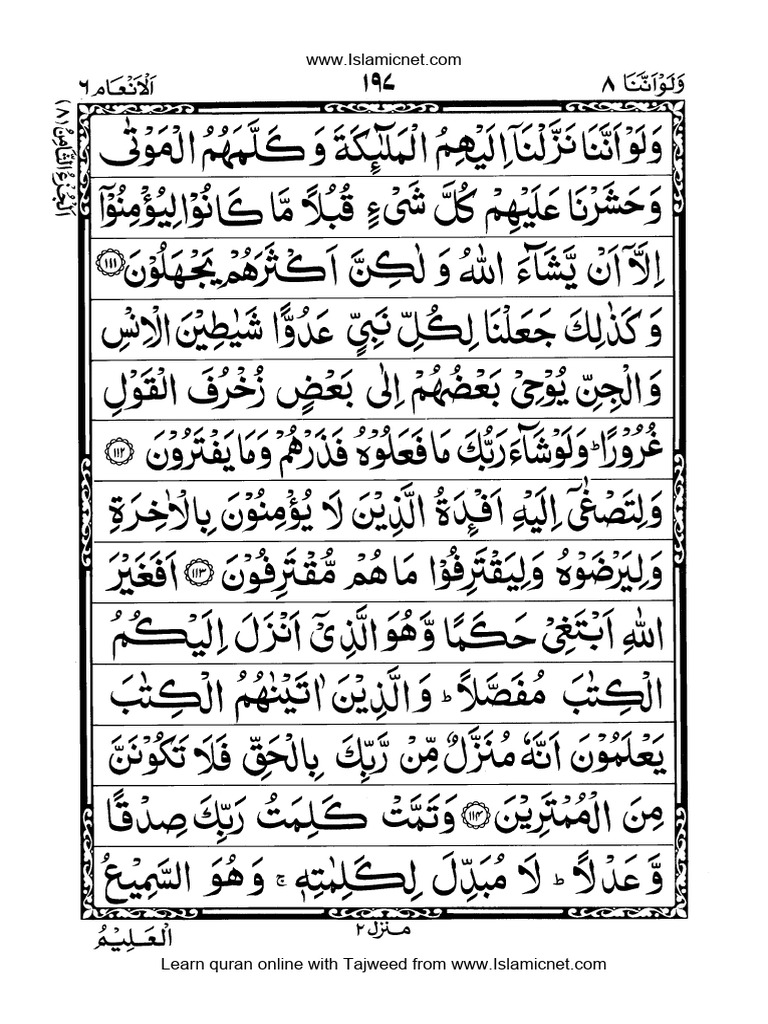 www.Islamicnet.com
وَلَوْاَنَّنَا ٨
١٩٧
اَلْاَنْعَام ٦
اَلْجُزْءُ الثَّامِنُ (٨)
وَلَوْ اَنَّنَا نَزَّلْنَاۤ اِلَيْهِمُ الْمَلٰٓئِكَةَ وَ كَلَّمَهُمُ الْمَوْتٰى
وَحَشَرْنَا عَلَيْهِمْ كُلَّ شَىْءٍ قُبُلًا مَّا كَانُوْا لِيُؤْمِنُوْۤا
اِلَّاۤ اَنْ يَّشَآءَ اللهُ وَ لٰكِنَّ اَكْثَرَهُمْ يَجْهَلُوْنَ ١١١
وَ كَذٰلِكَ جَعَلْنَا لِكُلِّ نَبِيٍّ عَدُوًّا شَيٰطِيْنَ الْاِنْسِ
وَالْجِنِّ يُوْحِىْ بَعْضُهُمْ اِلٰى بَعْضٍ زُخْرُفَ الْقَوْلِ
غُرُوْرًا ؕ وَلَوْ شَآءَ رَبُّكَ مَا فَعَلُوْهُ فَذَرْهُمْ وَمَا يَفْتَرُوْنَ ١١٢
وَلِتَصْغٰٓى اِلَيْهِ اَفْـِٕدَةُ الَّذِيْنَ لَا يُؤْمِنُوْنَ بِالْاٰخِرَةِ
وَلِيَرْضَوْهُ وَلِيَقْتَرِفُوْا مَا هُمْ مُّقْتَرِفُوْنَ ١١٣ اَفَغَيْرَ
اللهِ اَبْتَغِىْ حَكَمًا وَّهُوَ الَّذِىْۤ اَنْزَلَ اِلَيْكُمُ
الْكِتٰبَ مُفَصَّلًا ؕ وَالَّذِيْنَ اٰتَيْنٰهُمُ الْكِتٰبَ
يَعْلَمُوْنَ اَنَّهٗ مُنَزَّلٌ مِّنْ رَّبِّكَ بِالْحَقِّ فَلَا تَكُوْنَنَّ
مِنَ الْمُمْتَرِيْنَ ١١٤ وَتَمَّتْ كَلِمَتُ رَبِّكَ صِدْقًا
وَّعَدْلًا ؕ لَا مُبَدِّلَ لِكَلِمٰتِهٖ ۚ وَهُوَ السَّمِيْعُ
منزل ٢
الْعَلِيْمُ
Learn quran online with Tajweed from www.Islamicnet.com